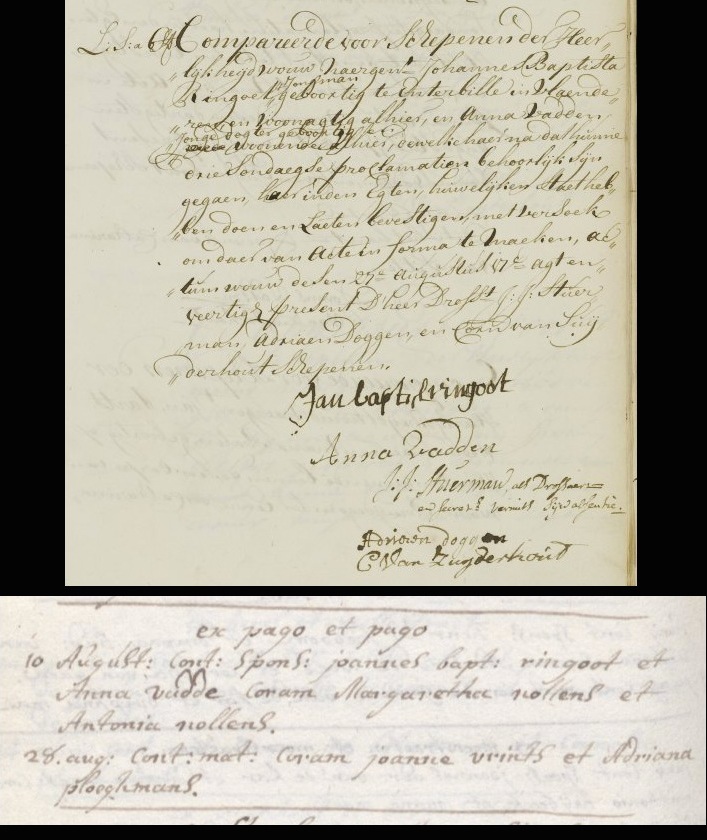 L: S: a 6 ß Compareerde voor Schepenen der Heer„
„lijkheyd wouw naergen.t Johannes Baptista
jonkman
Ringoet, geboortig te Enterbille in Vlaende„
„ren en woonagtig alhier, en Anna Vadden,
jonge dogter geboortig
wonende alhier, dewelke haer na dat hunne
drie Sondaegse proclamatien behoorlijk sijn
gegaen, haer in den Egten, huwelijken Staet heb„
„ben doen en Laeten bevestigen, met versoek
om daer van Acte in forma te Maeken, ac„
„tum wouw desen 27.e augustus 17.c agt en„
veertig, present D'heer Drosst J: J: Stuer
man, Adriaen Doggen, en Corn: van Suij
„derhout Schepenen.
Jan baptist ringoot
Anna Vadden
J: J: Stuerman, als Drossaert
en secret.s vermits sijn absentie.
Adriaen doggen
C Van Zuyderhout
ex pago et pago
10 August: Cont: Spons: joannes bapt: ringoot et
Anna vadde Coram Margaretha nollens et
Antonia nollens.
28. aug: Cont: mat: Coram joanne vrints et Adriana
ploeghmans.